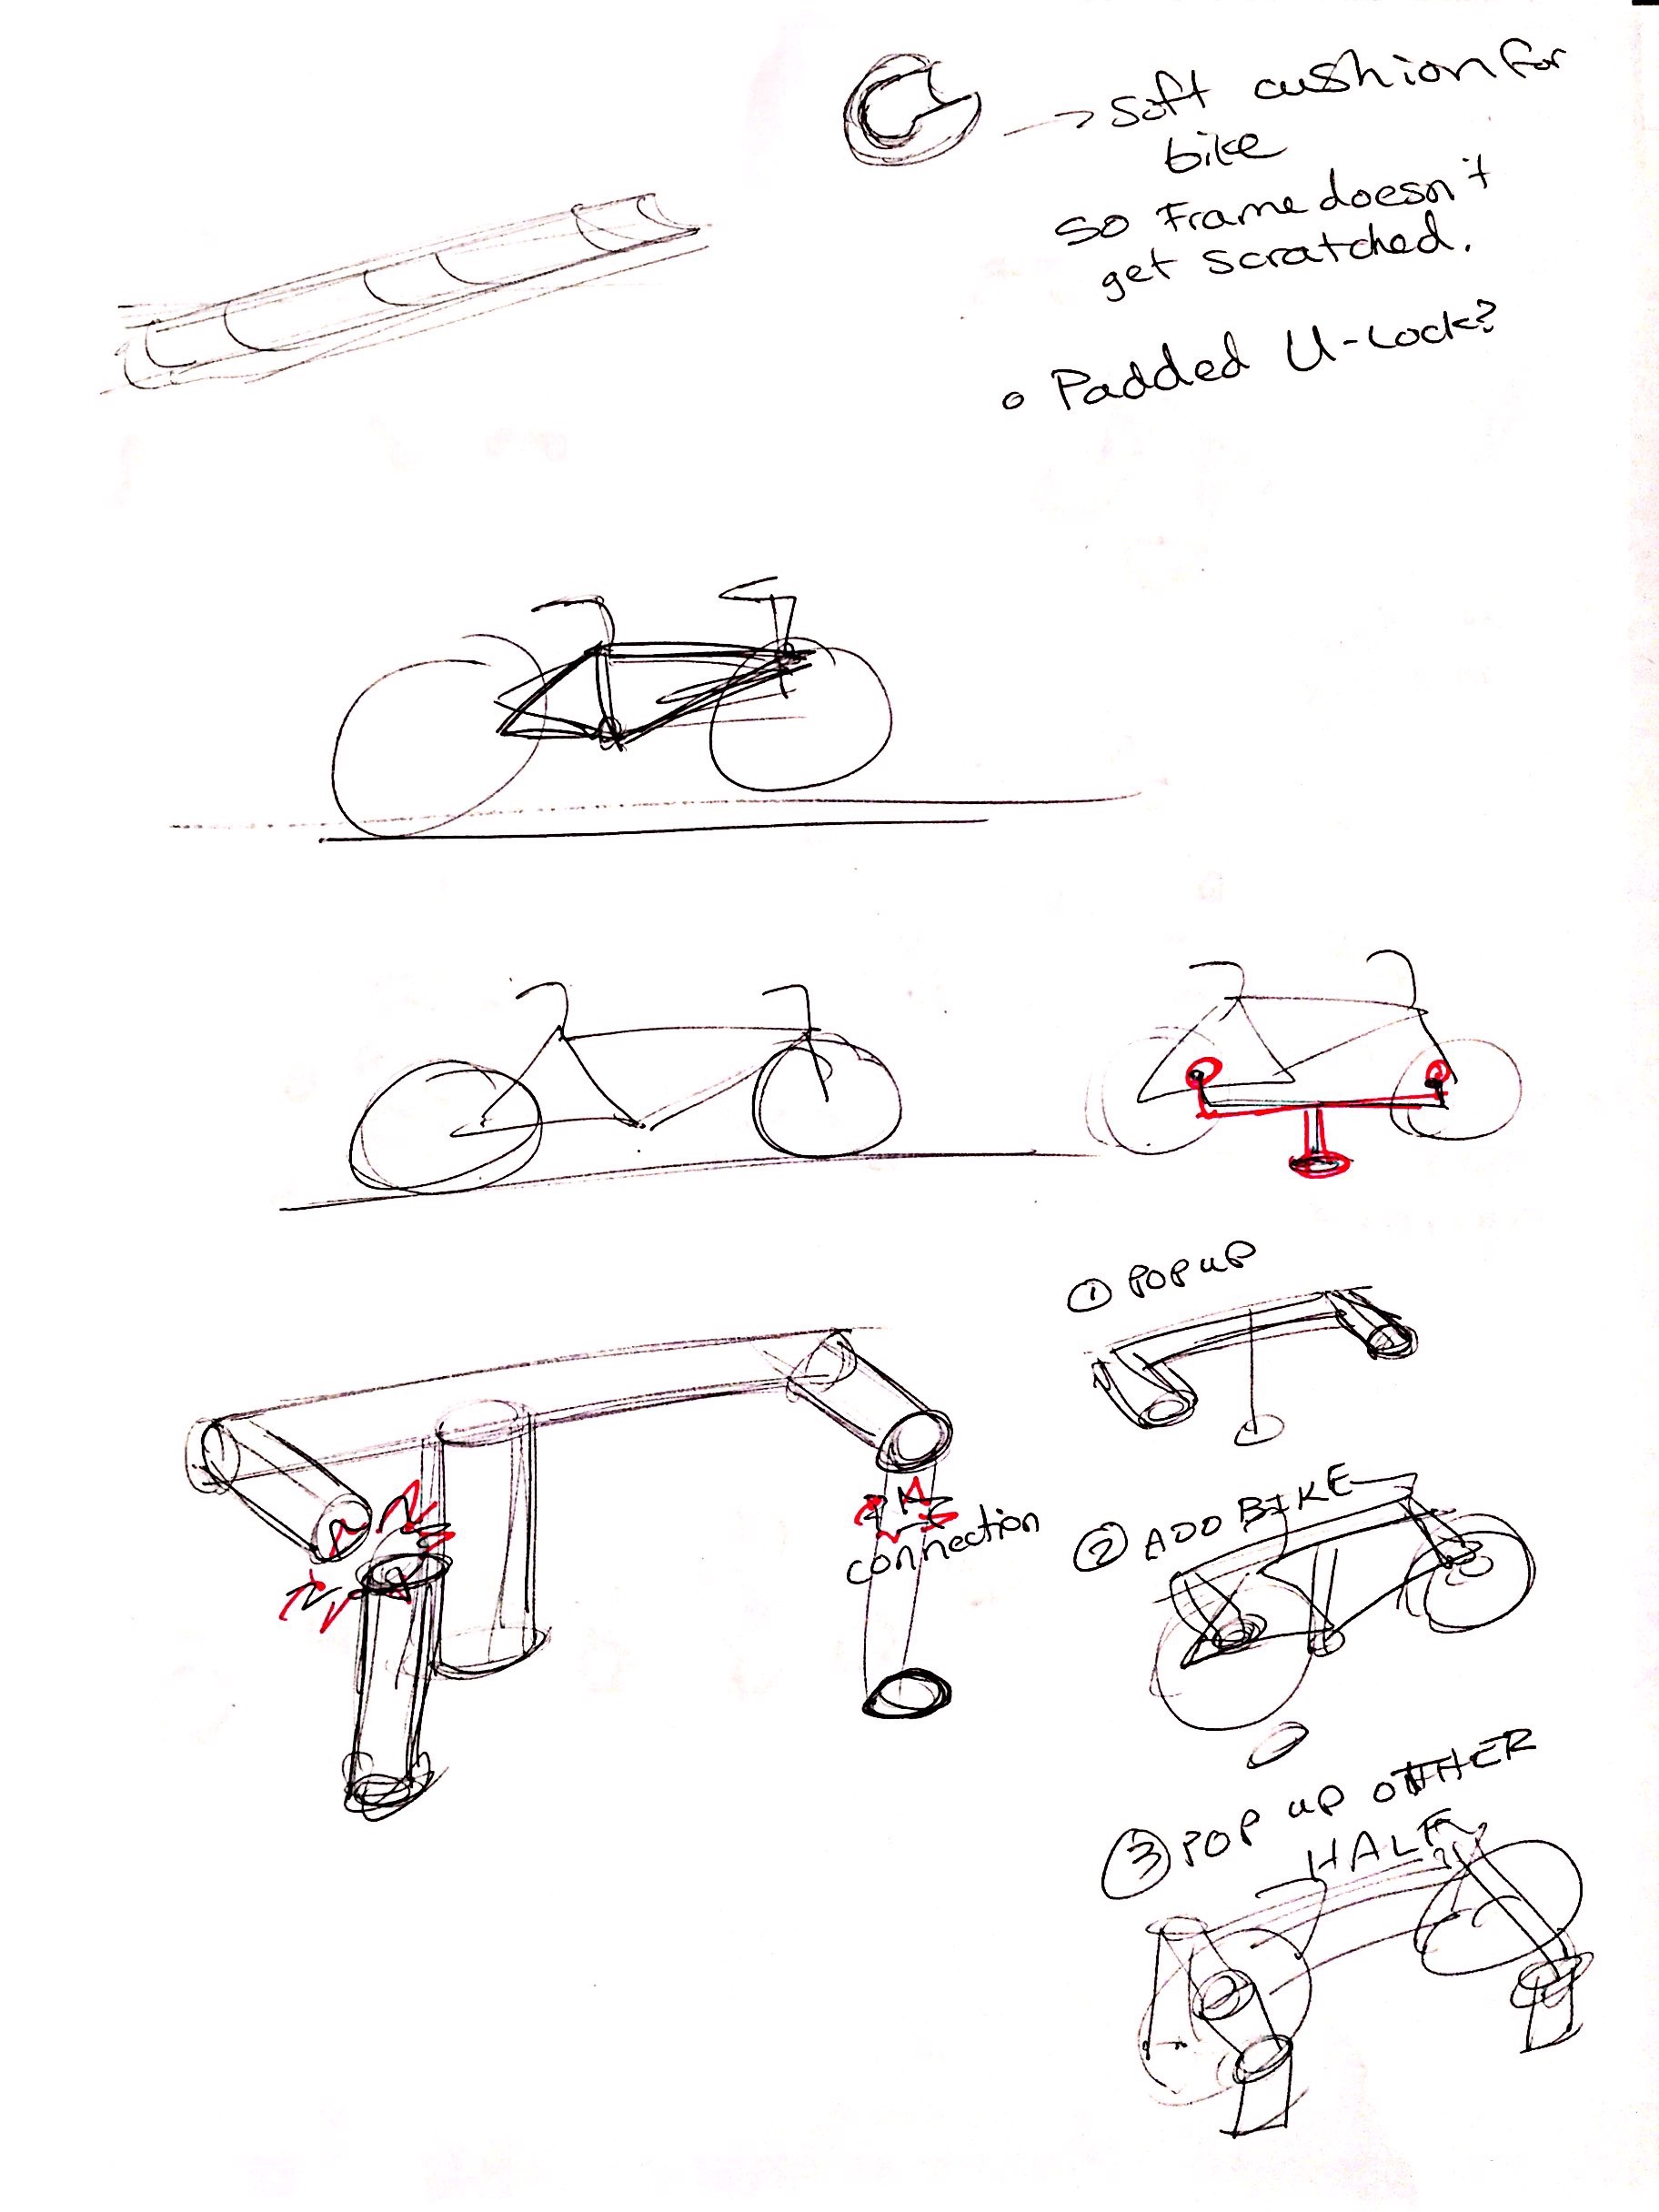 → soft cushion for
bike
so Frame doesn't
get scratched.
o Padded U-Lock?
① POP UP
connection
② ADD BIKE
③ POP UP OTHER
HALF